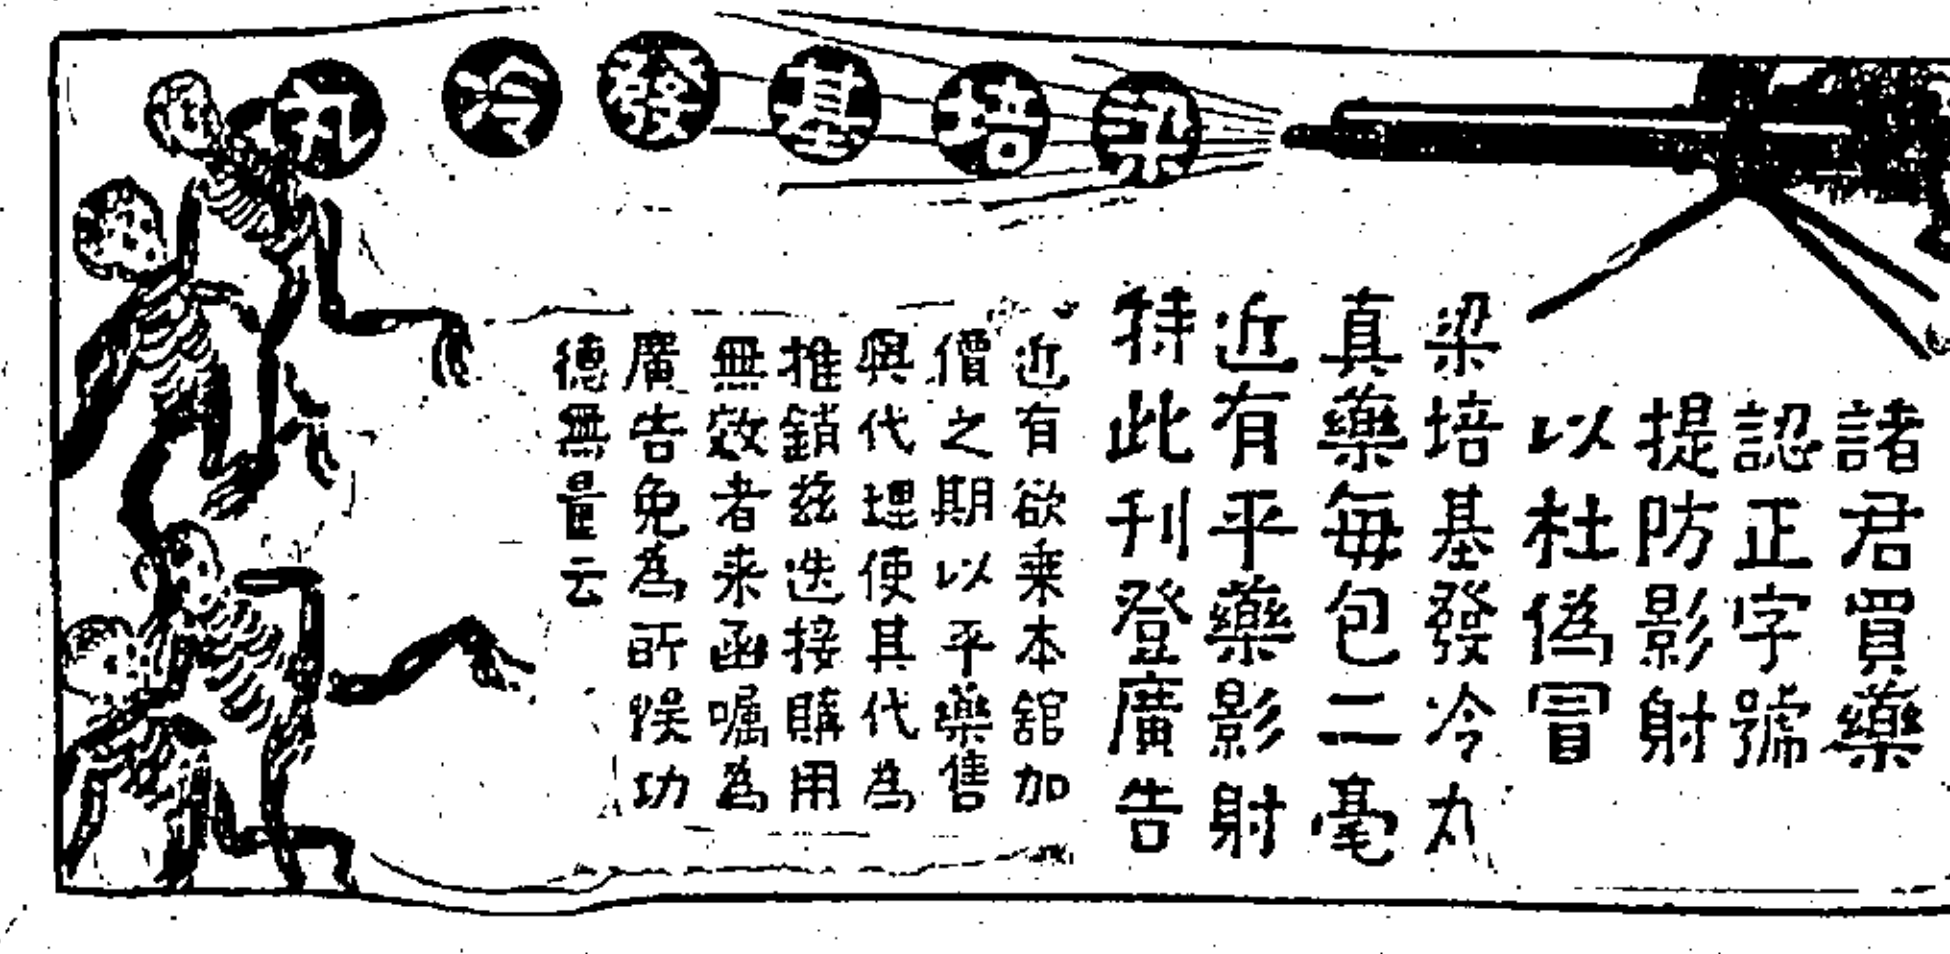 梁培基發冷丸
諸君買藥
認正字號
提防影射
以杜偽冒
梁培基發冷丸
真藥每包二毫
近有平藥影射
特此刊登廣告
近有欲乗本舘加
價之期以平藥售
與代理使其代為
推銷茲迭接購用
無效者来函囑為
廣告免為所悞功
德無量云